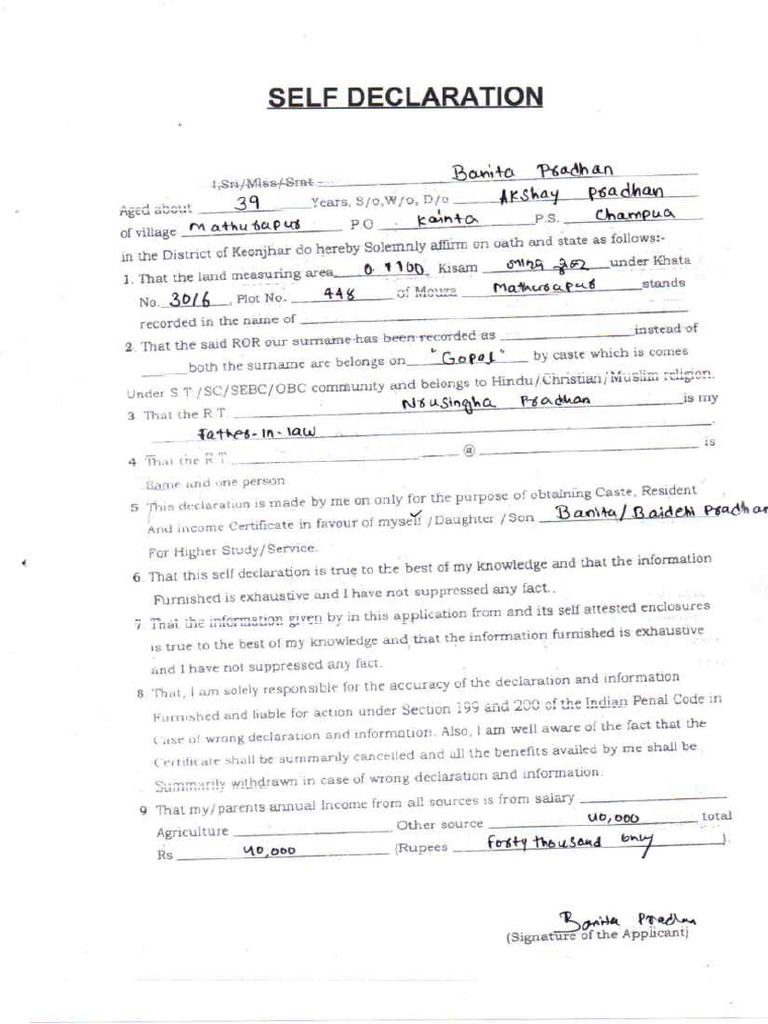 SELF DECLARATION
I,Sri/Miss/Smt Banita Pradhan
Aged about 39 Years, S/o,W/o, D/o Akshay Pradhan
of village Mathurapur P.O Kainta P.S. Champua
in the District of Keonjhar do hereby Solemnly affirm on oath and state as follows:-
1. That the land measuring area 0.1100 Kisam under Khata
No. 30/6 , Plot No. 448 of Mouza Mathurapur stands
recorded in the name of
2. That the said ROR our surname has been recorded as instead of
both the surname are belongs on "Gopal" by caste which is comes
Under S.T./SC/SEBC/OBC community and belongs to Hindu/Christian/Muslim religion.
3 That the R.T. Nrusingha Pradhan is my
father-in-law
4 That the R.T. @ is
Same and one person
5 This declaration is made by me on only for the purpose of obtaining Caste, Resident
And income Certificate in favour of myself ✓ /Daughter /Son Banita/ Baidehi Pradhan
For Higher Study/Service.
6. That this self declaration is true to the best of my knowledge and that the information
Furnished is exhaustive and I have not suppressed any fact..
7 That the information given by in this application from and its self attested enclosures
is true to the best of my knowledge and that the information furnished is exhaustive
and I have not suppressed any fact.
8 That, I am solely responsible for the accuracy of the declaration and information
Furnished and liable for action under Section 199 and 200 of the Indian Penal Code in
Case of wrong declaration and information. Also, I am well aware of the fact that the
Certificate shall be summarily cancelled and all the benefits availed by me shall be
Summarily withdrawn in case of wrong declaration and information.
9 That my/parents annual Income from all sources is from salary
Agriculture Other source 40,000 total
Rs 40,000 (Rupees forty thousand only ).
Banita Pradhan
(Signature of the Applicant)